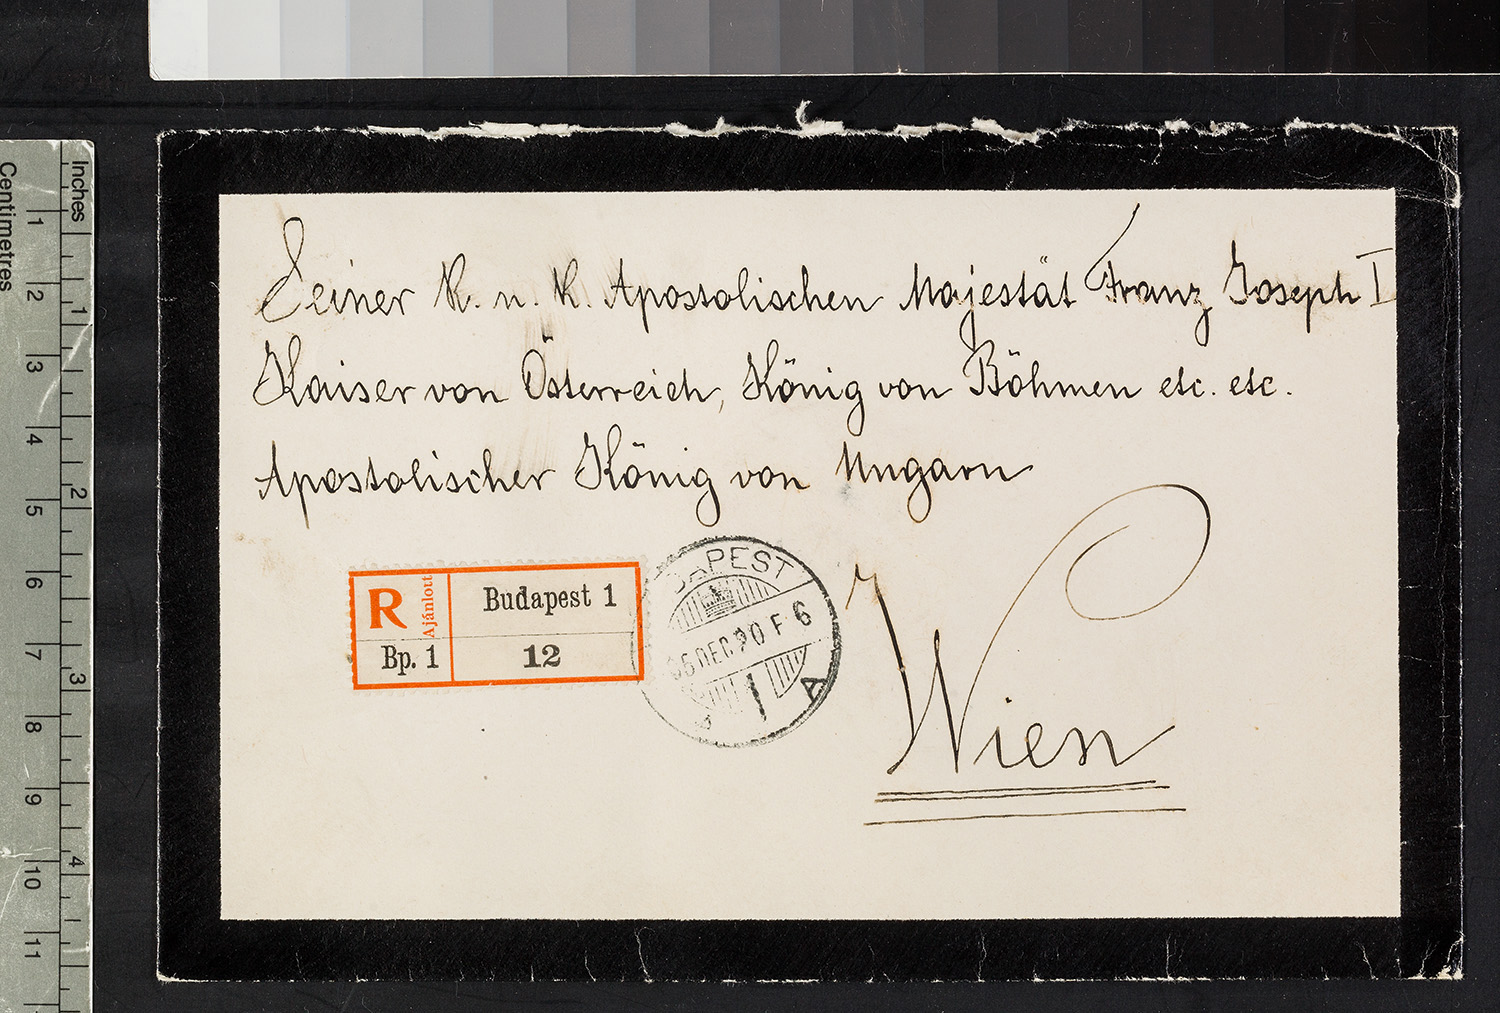 Inches
Centimetres
1 2 3 4 5 6 7 8 9 10 11
1 2 3 4
Seiner K. u. K. Apostolischen Majestät Franz Joseph I
Kaiser von Österreich, König von Böhmen etc. etc.
Apostolischer König von Ungarn
R Ajánlott Budapest 1
Bp. 1 12
DAPEST
DEC 20 F 6
1 A
Wien